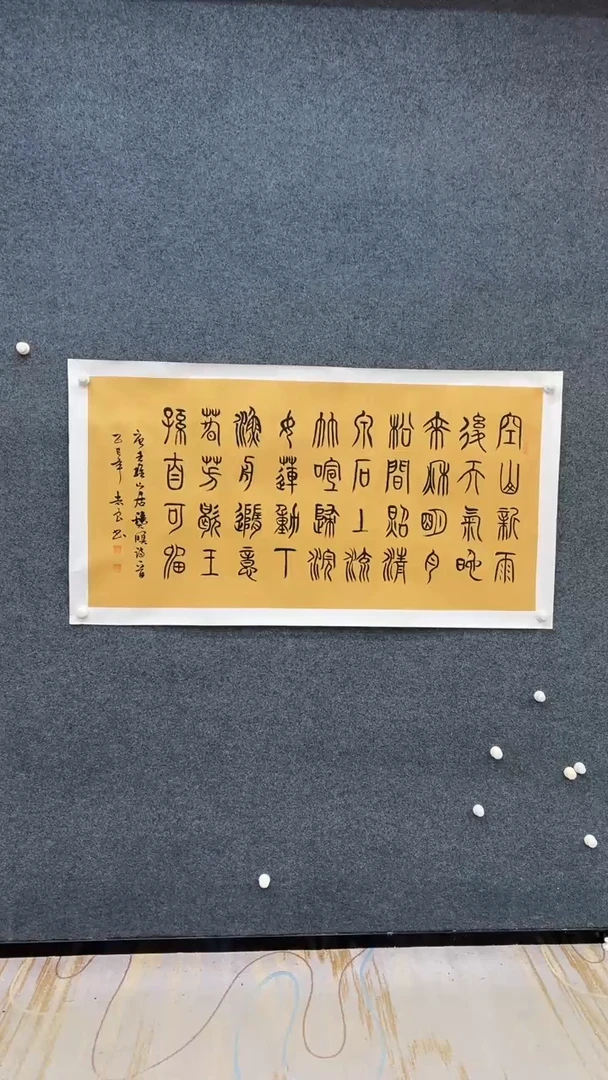 空山新雨
後天氣晚
來秋明月
松間照清
泉石上流
竹喧歸浣
女蓮動下
漁舟隨意
春芳歇王
孫自可留
唐王維山居秋暝詩一首
乙巳年 书